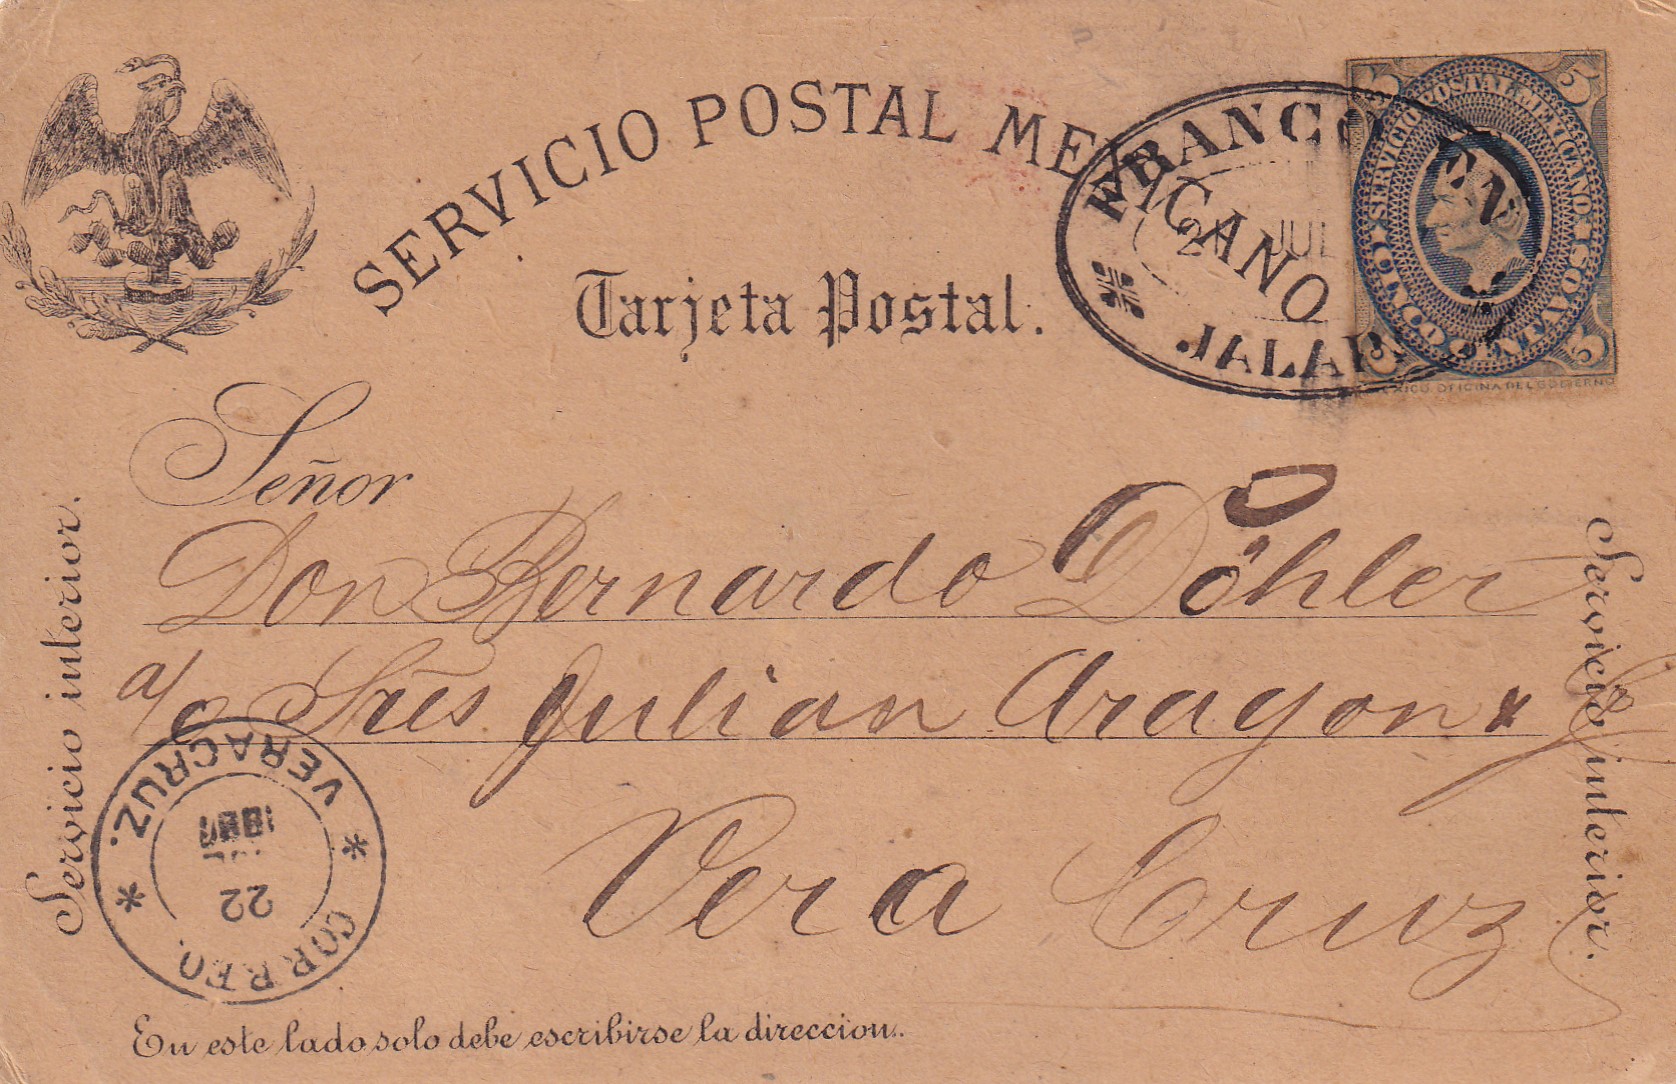 SERVICIO POSTAL MEXICANO
Tarjeta Postal.
FRANCO EN
JUL
JALAPA
SERVICIO POSTAL MEXICANO
CINCO CENTAVOS
5 5
5 5
MEXICO. OFICINA DEL GOBIERNO
Señor
Don Bernardo Döhler
a/c Sres Julian Aragon &
Vera Cruz
Servicio interior.
Servicio interior.
CORREO.
VERACRUZ.
22
En este lado solo debe escribirse la direccion.